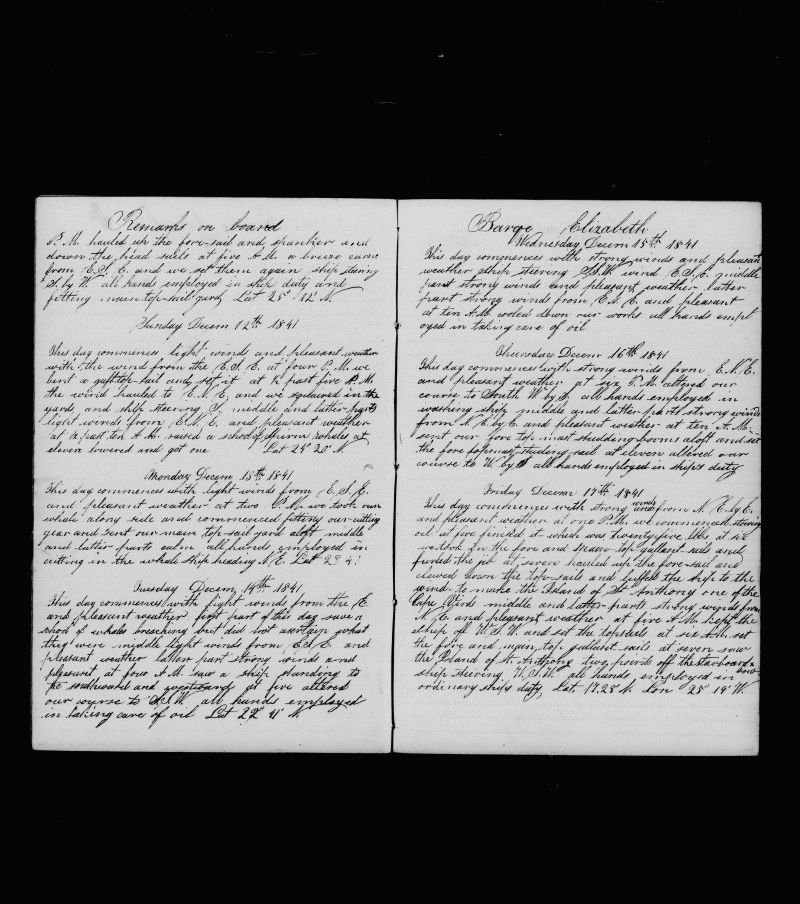 Remarks on board
P. M. hauled up the fore-sail and spanker and
down the head sails at five A.M. a breeze came
from E.S.E. and we set them again ship steering
S. by W. all hands employed in ship duty and
fitting main top-sail yard Lat 25° 12' N.
Sunday Decem 12th 1841
This day commences light winds and pleasant weather
with the wind from the E.S.E. at four P.M. we
bent a gafftop-sail and set it at ½ past five P.M.
the wind hauled to E.N.E. and we squared in the
yards and ship steering S. middle and latter parts
light winds from E.N.E. and pleasant weather
at ½ past ten A.M. raised a school of sperm whales at
eleven lowered and got one Lat 24° 20' N.
Monday Decem 13th 1841
This day commences with light winds from E.S.E.
and pleasant weather at two P.M. we took our
whale along side and commenced fitting our cutting
gear and sent our main top-sail yard aloft middle
and latter parts calm all hands employed in
cutting in the whale ship heading N.E. Lat
Tuesday Decem 14th 1841
This day commences with light winds from the E.
and pleasant weather first part of this day saw a
school of whales breaching but did not assertain what
they were middle light winds from E.S.E. and
pleasant weather latter part strong winds and
pleasant at four A.M. saw a ship standing to
the southward and westward at five altered
our course to S.S.W. all hands employed
in taking care of oil Lat 22° 41' N.
Barqe Elizabeth
Wednesday Decem 15th 1841
This day commences with strong winds and pleasant
weather ship steering S.S.W. wind E.S.E. middle
part strong winds and pleasant weather latter
part strong winds from E.S.E. and pleasant
at ten A.M. cooled down our works all hands empl
oyed in taking care of oil
Thursday Decem 16th 1841
This day commences with strong winds from E.N.E.
and pleasant weather at six P.M. altered our
course to South W. by S. all hands employed in
washing ship middle and latter parts strong winds
from N.E. by E. and pleasant weather at ten A.M.
sent our fore top mast studding booms aloft and set
the fore topmast studding sail at eleven altered our
course to W. by S. all hands employed in ships duty
Friday Decem 17th 1841
This day commences with strong winds from N.E. by E.
and pleasant weather at one P.M. we commenced stowing
oil at five finished it which was twenty-five bbls at six
we took in the fore and main top-gallant sails and
furled the jib at seven hauled up the fore-sail and
clewed down the top-sails and luffed the ship to the
wind to make the Island of St Anthony one of the
Cape Verds middle and latter parts strong winds from
N.E. and pleasant weather at five A.M. kept the
ship off W.S.W. and set the topsails at six A.M. set
the fore and main top gallant sails at seven saw
the Island of St Anthony two points off the starboard bow
ship steering W.S.W. all hands employed in
ordinary ships duty, Lat. 17.28 N. Lon 25° 19' W.